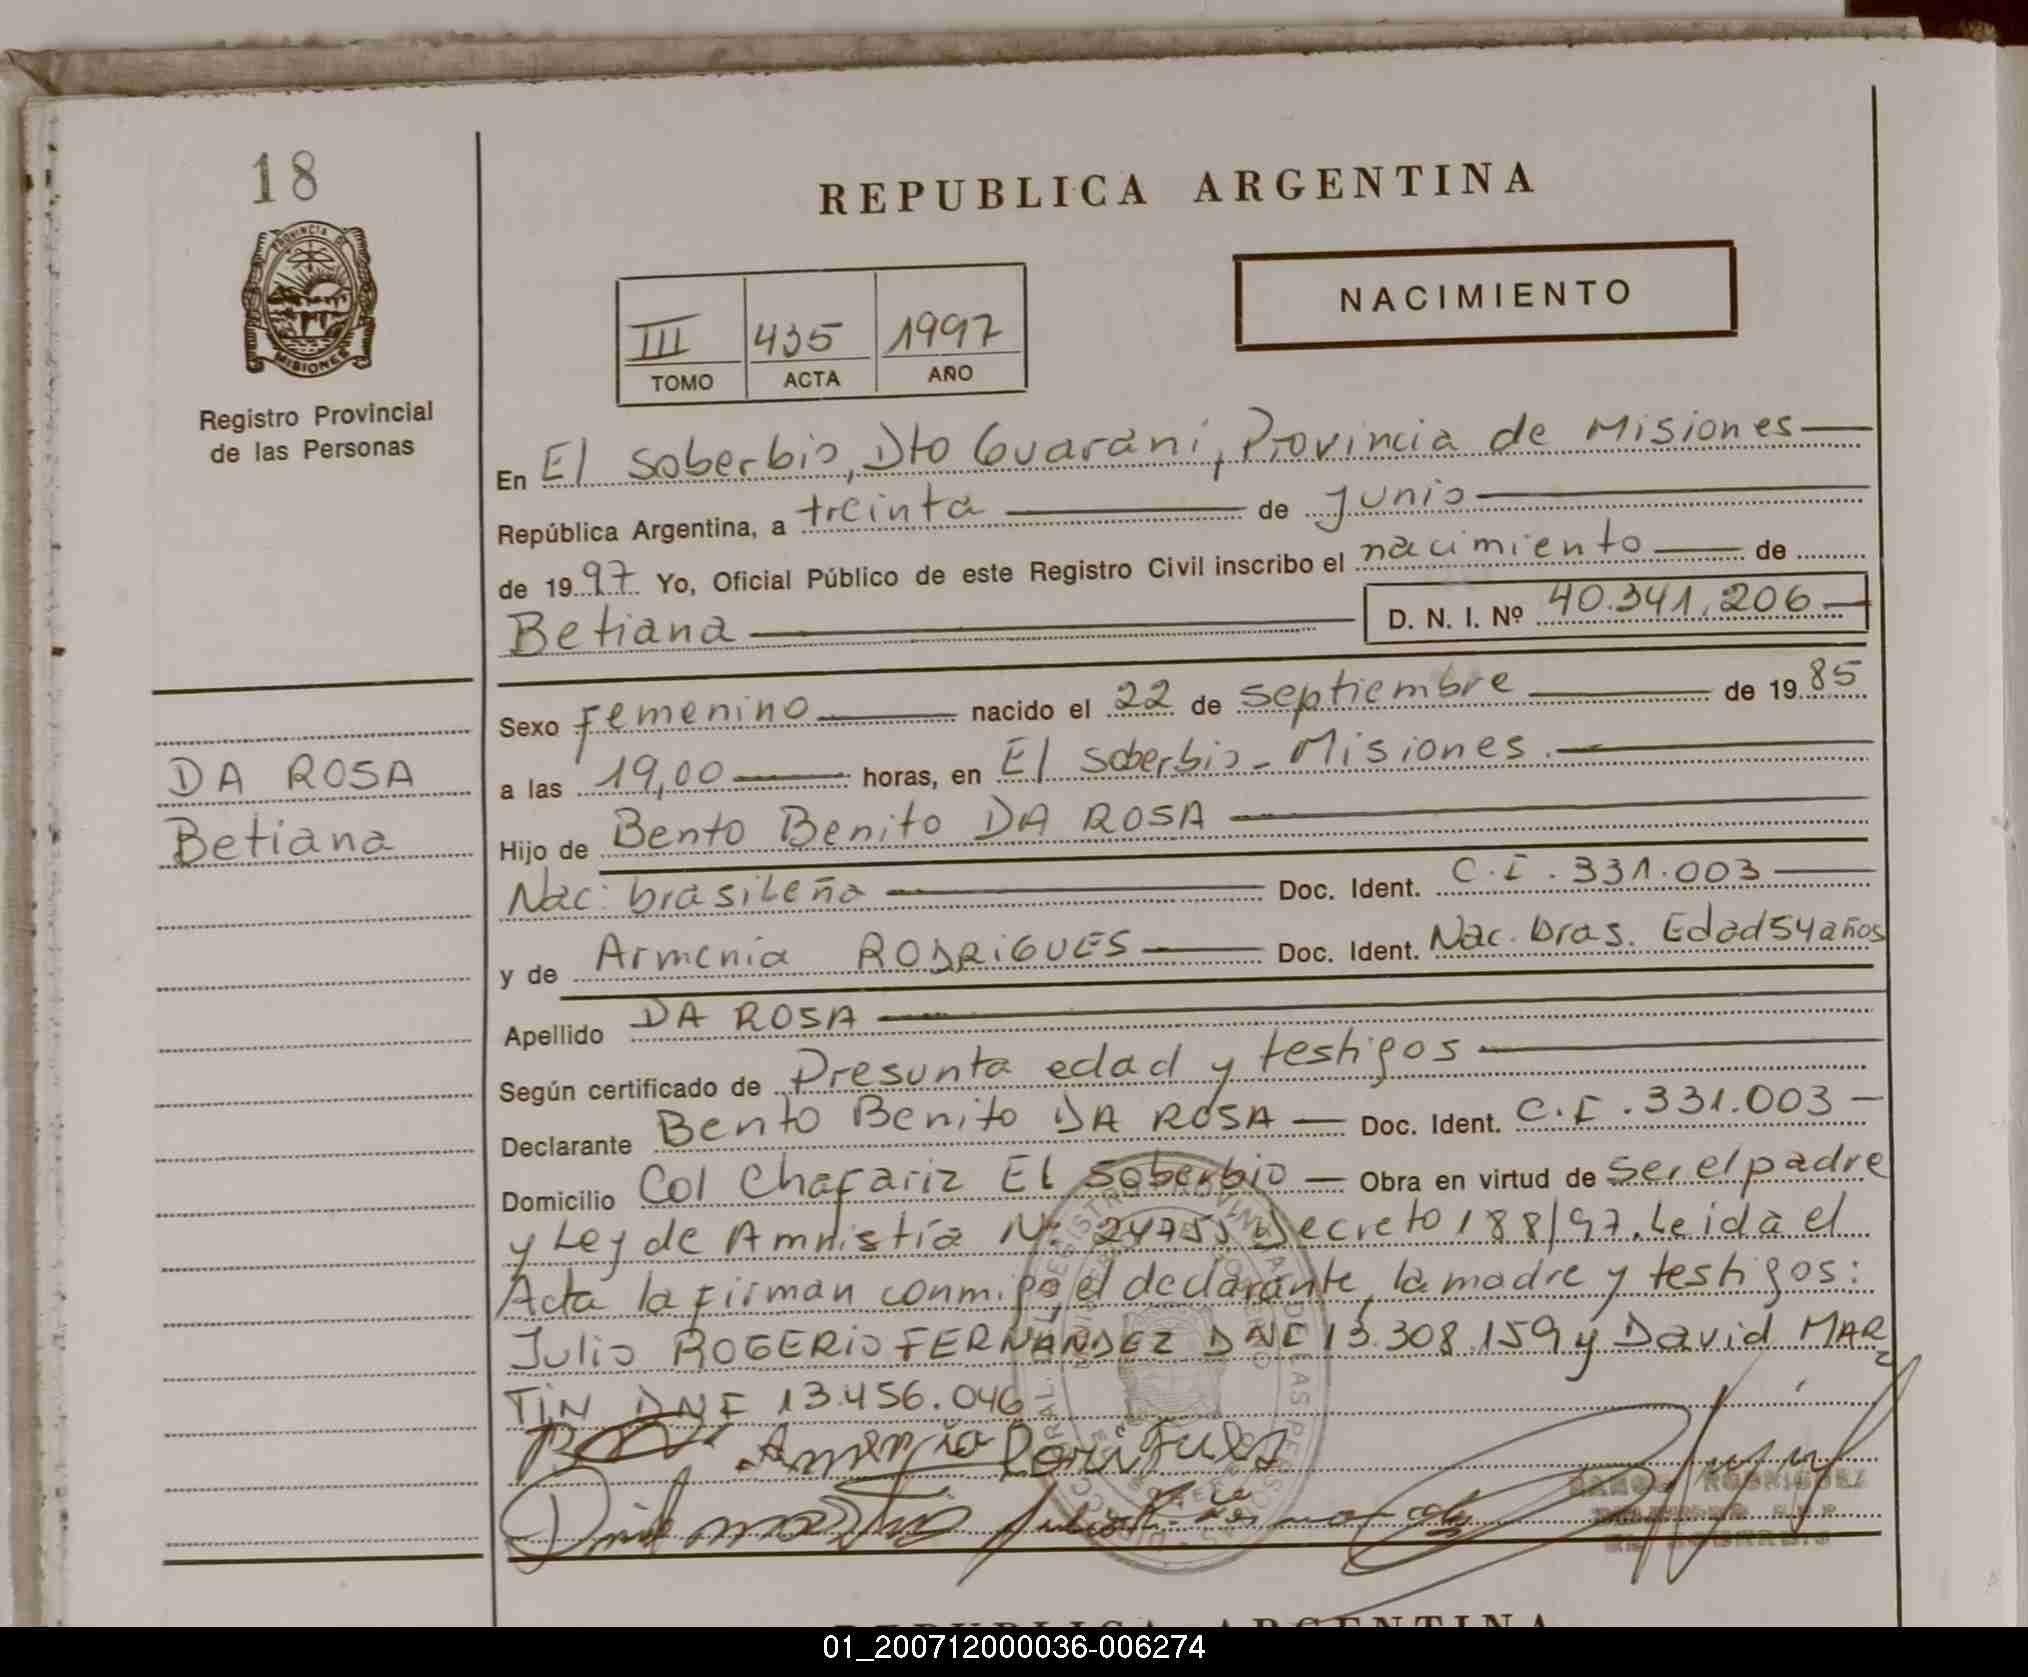 18
PROVINCIA DE
MISIONES
Registro Provincial
de las Personas
DA ROSA
Betiana
REPUBLICA ARGENTINA
NACIMIENTO
III 435 1997
TOMO ACTA AÑO
En El Soberbio, Dto Guarani, Provincia de Misiones
República Argentina, a treinta de junio
de 1997 Yo, Oficial Público de este Registro Civil inscribo el nacimiento de
Betiana D. N. I. Nº 40.341.206
Sexo femenino nacido el 22 de septiembre de 1985
a las 19,00 horas, en El Soberbio - Misiones.
Hijo de Bento Benito DA ROSA
Nac: brasileña Doc. Ident. C.I. 331.003
y de Armenia RODRIGUES Doc. Ident. Nac. bras. Edad 54 años
Apellido DA ROSA
Según certificado de Presunta edad y testigos
Declarante Bento Benito DA ROSA Doc. Ident. C.I. 331.003
Domicilio Col Chafariz El Soberbio Obra en virtud de ser el padre
y Ley de Amnistía Nº 24755 Decreto 188/97. Leida el
Acta la firman conmigo, el declarante, la madre y testigos:
Julio ROGERIO FERNANDEZ DNI 13.308.159 y David MAR
TIN DNI 13.456.046
RODRIGUEZ
REPUBLICA ARGENTINA
01_200712000036-006274